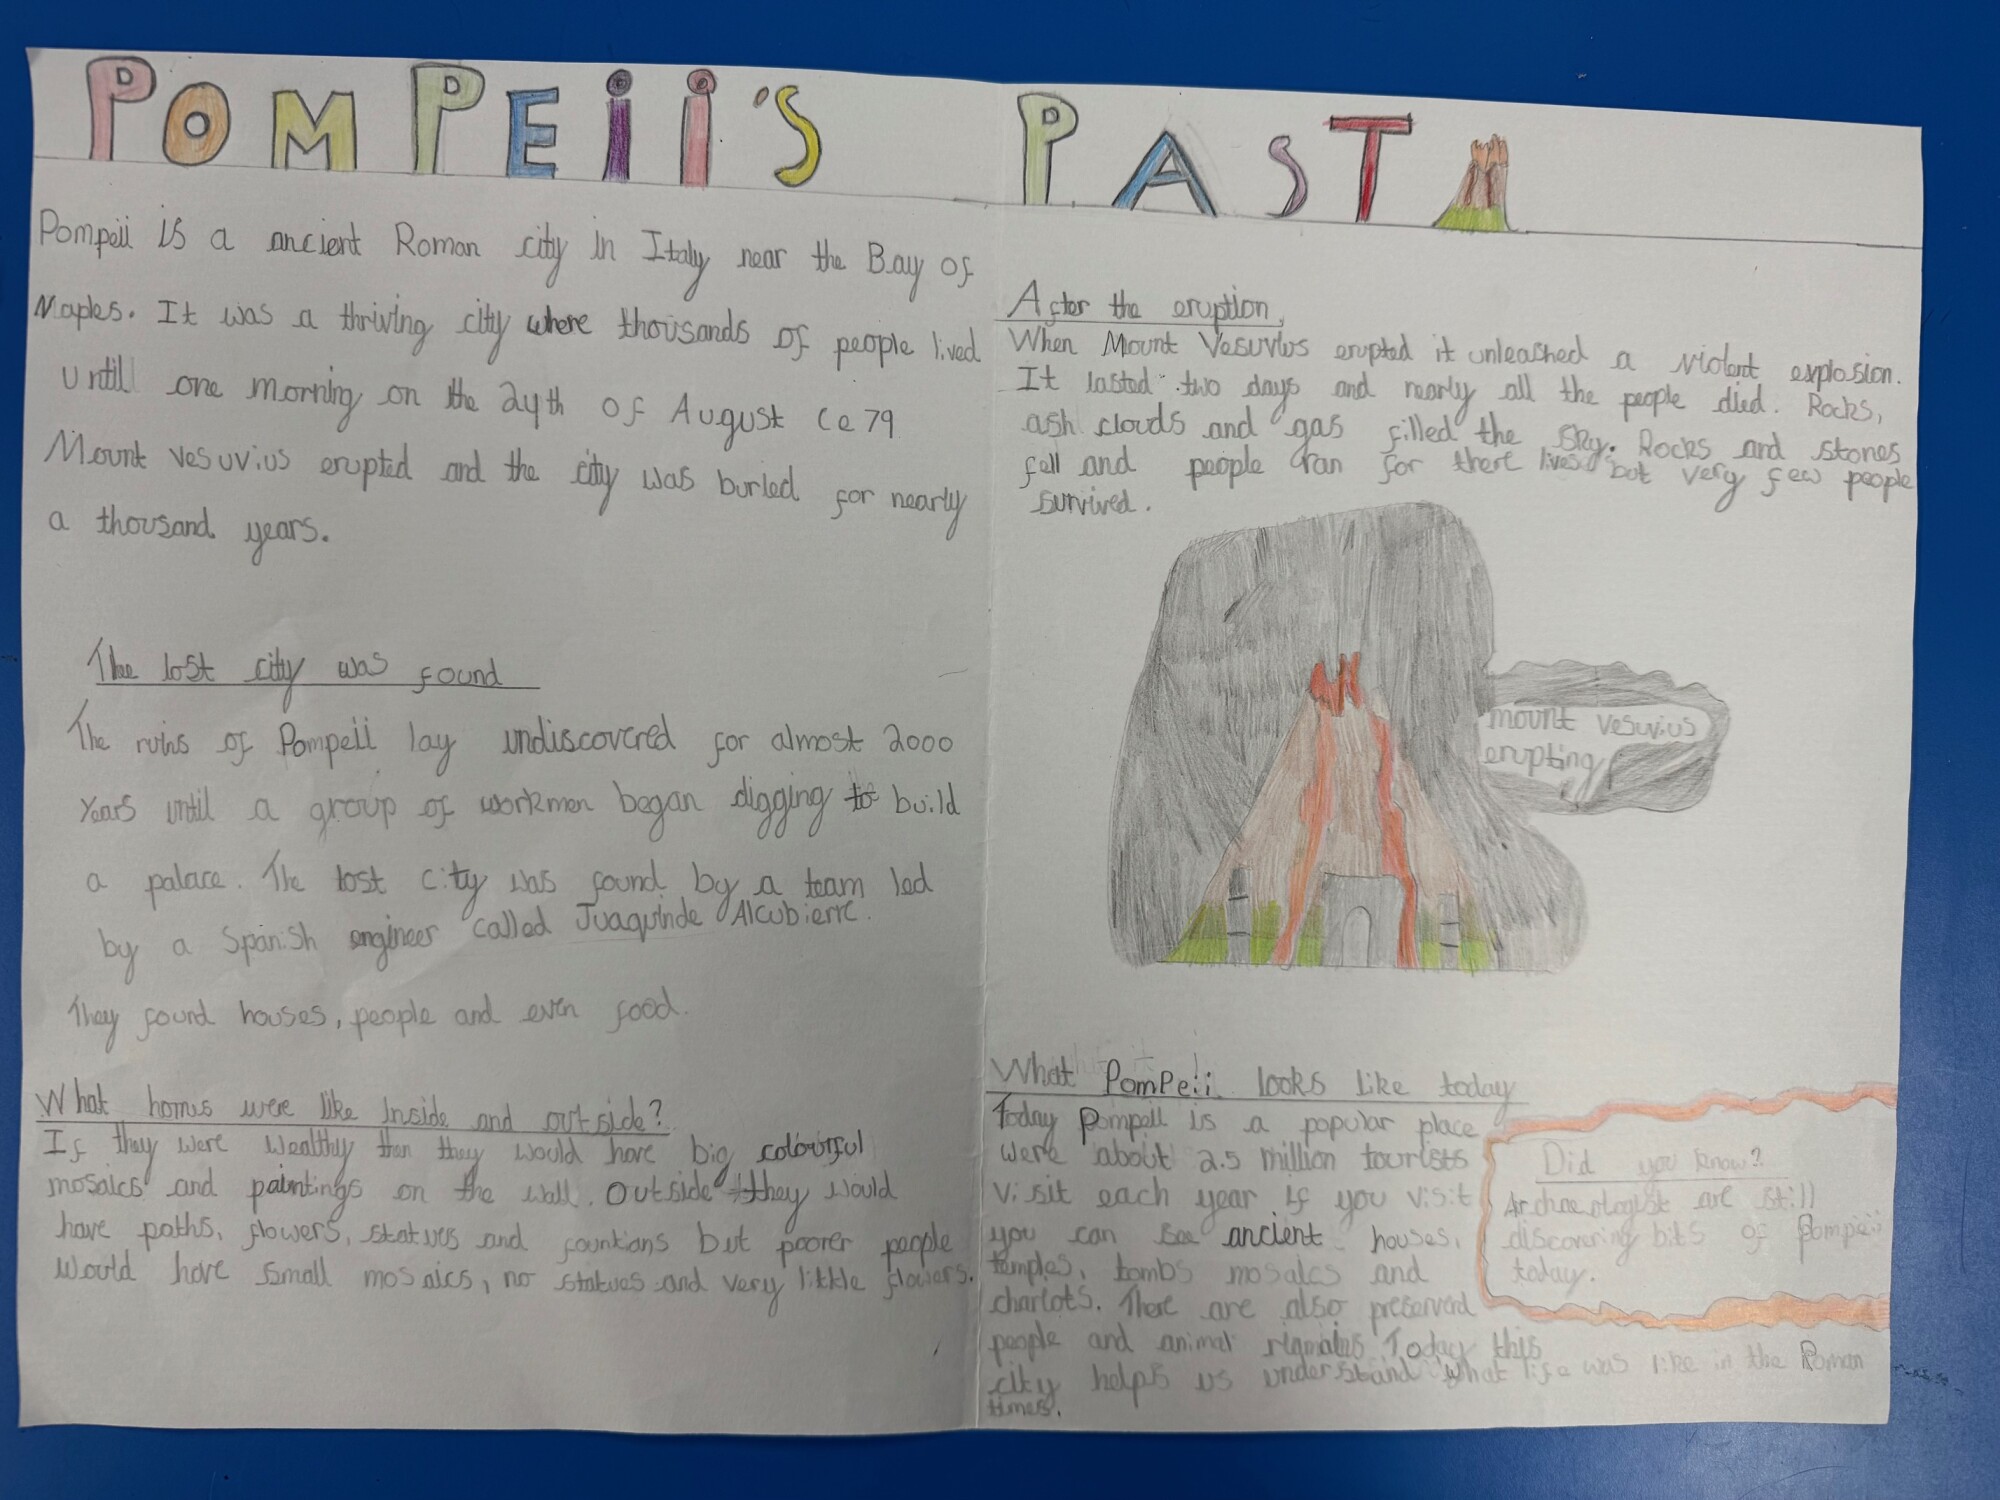 POMPEii'S PAST
Pompeii is a ancient Roman city in Italy near the Bay of
Naples. It was a thriving city where thousands of people lived
until one morning on the 24th of August Ce 79
Mount vesuvius erupted and the city was buried for nearly
a thousand years.
The lost city was found
The ruins of Pompeii lay undiscovered for almost 2000
years until a group of workmen began digging to build
a palace. The lost city was found by a team led
by a Spanish engineer called Juaquinde Alcubierre.
They found houses, people and even food.
What homes were like Inside and outside?
If they were wealthy then they would have big colourful
mosaics and paintings on the wall. Outside they would
have paths, flowers, statues and fountians but poorer people
would have small mosaics, no statues and very little flowers.
After the eruption
When Mount Vesuvius erupted it unleashed a violent explosion.
It lasted two days and nearly all the people died. Rocks,
ash clouds and gas filled the sky. Rocks and stones
fell and people ran for there lives but very few people
survived.
mount vesuvius
erupting
What PomPeii looks like today
Today Pompeii is a popular place
were about 2.5 million tourists
visit each year if you visit
you can see ancient houses,
temples, tombs mosaics and
chariots. There are also preserved
people and animal rigmais Today this
city helps us understand what life was like in the Roman
times.
Did you know?
Archaeologist are still
discovering bits of Pompeii
today.